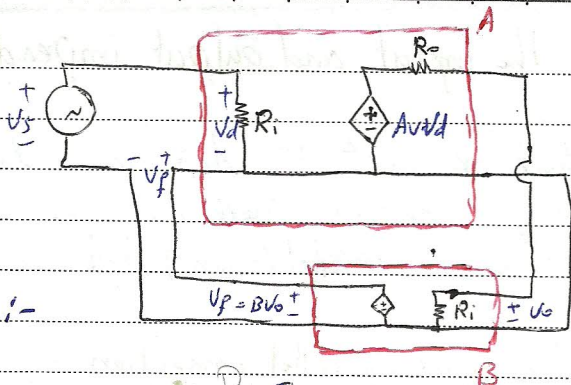 the
A
Ro
+
Vs
-
+
Vd
-
Ri
+
-
AvVd
- Vf +
:-
Vf = BVo +
-
Ri
± Vo
B